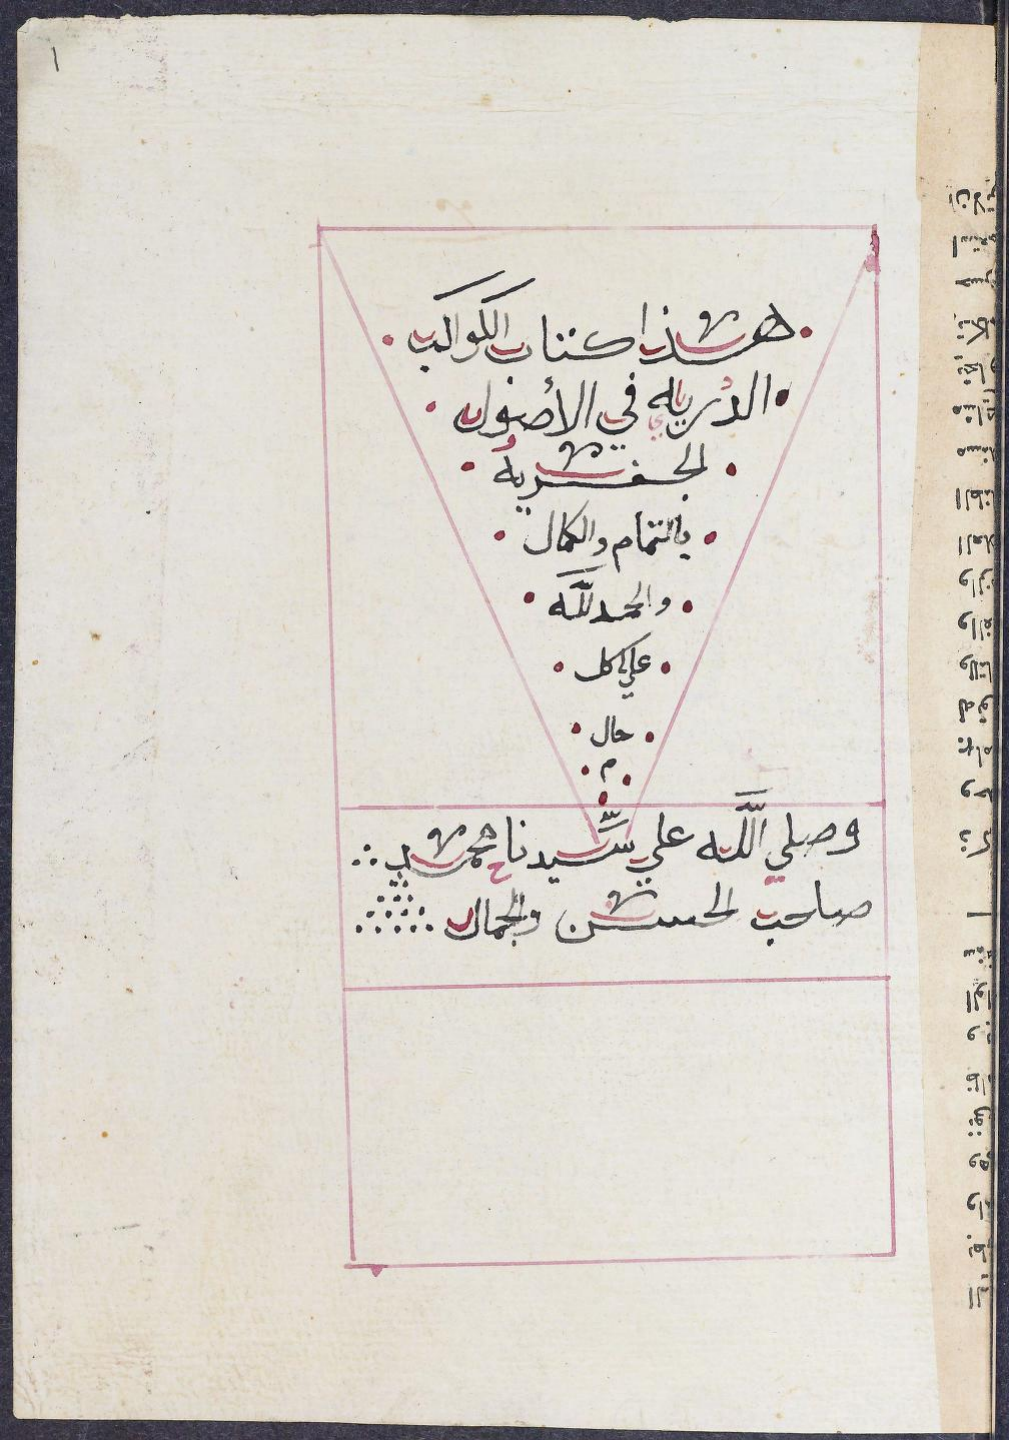 ١
هذا كتاب الكواكب
الدريه في الأصول
الجفرية
بالتمام والكمال
والحمد لله
علي كل
حال
م
وصلي اللّه علي سيدنا محمد
صاحب الحسن والجمال